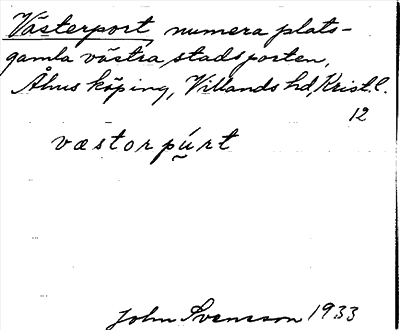 Västerport, numera plats-
gamla västra stadsporten,
Åhus köping, Villands hd, Krist. l.
12
væstorpúrt
John Svensson 1933